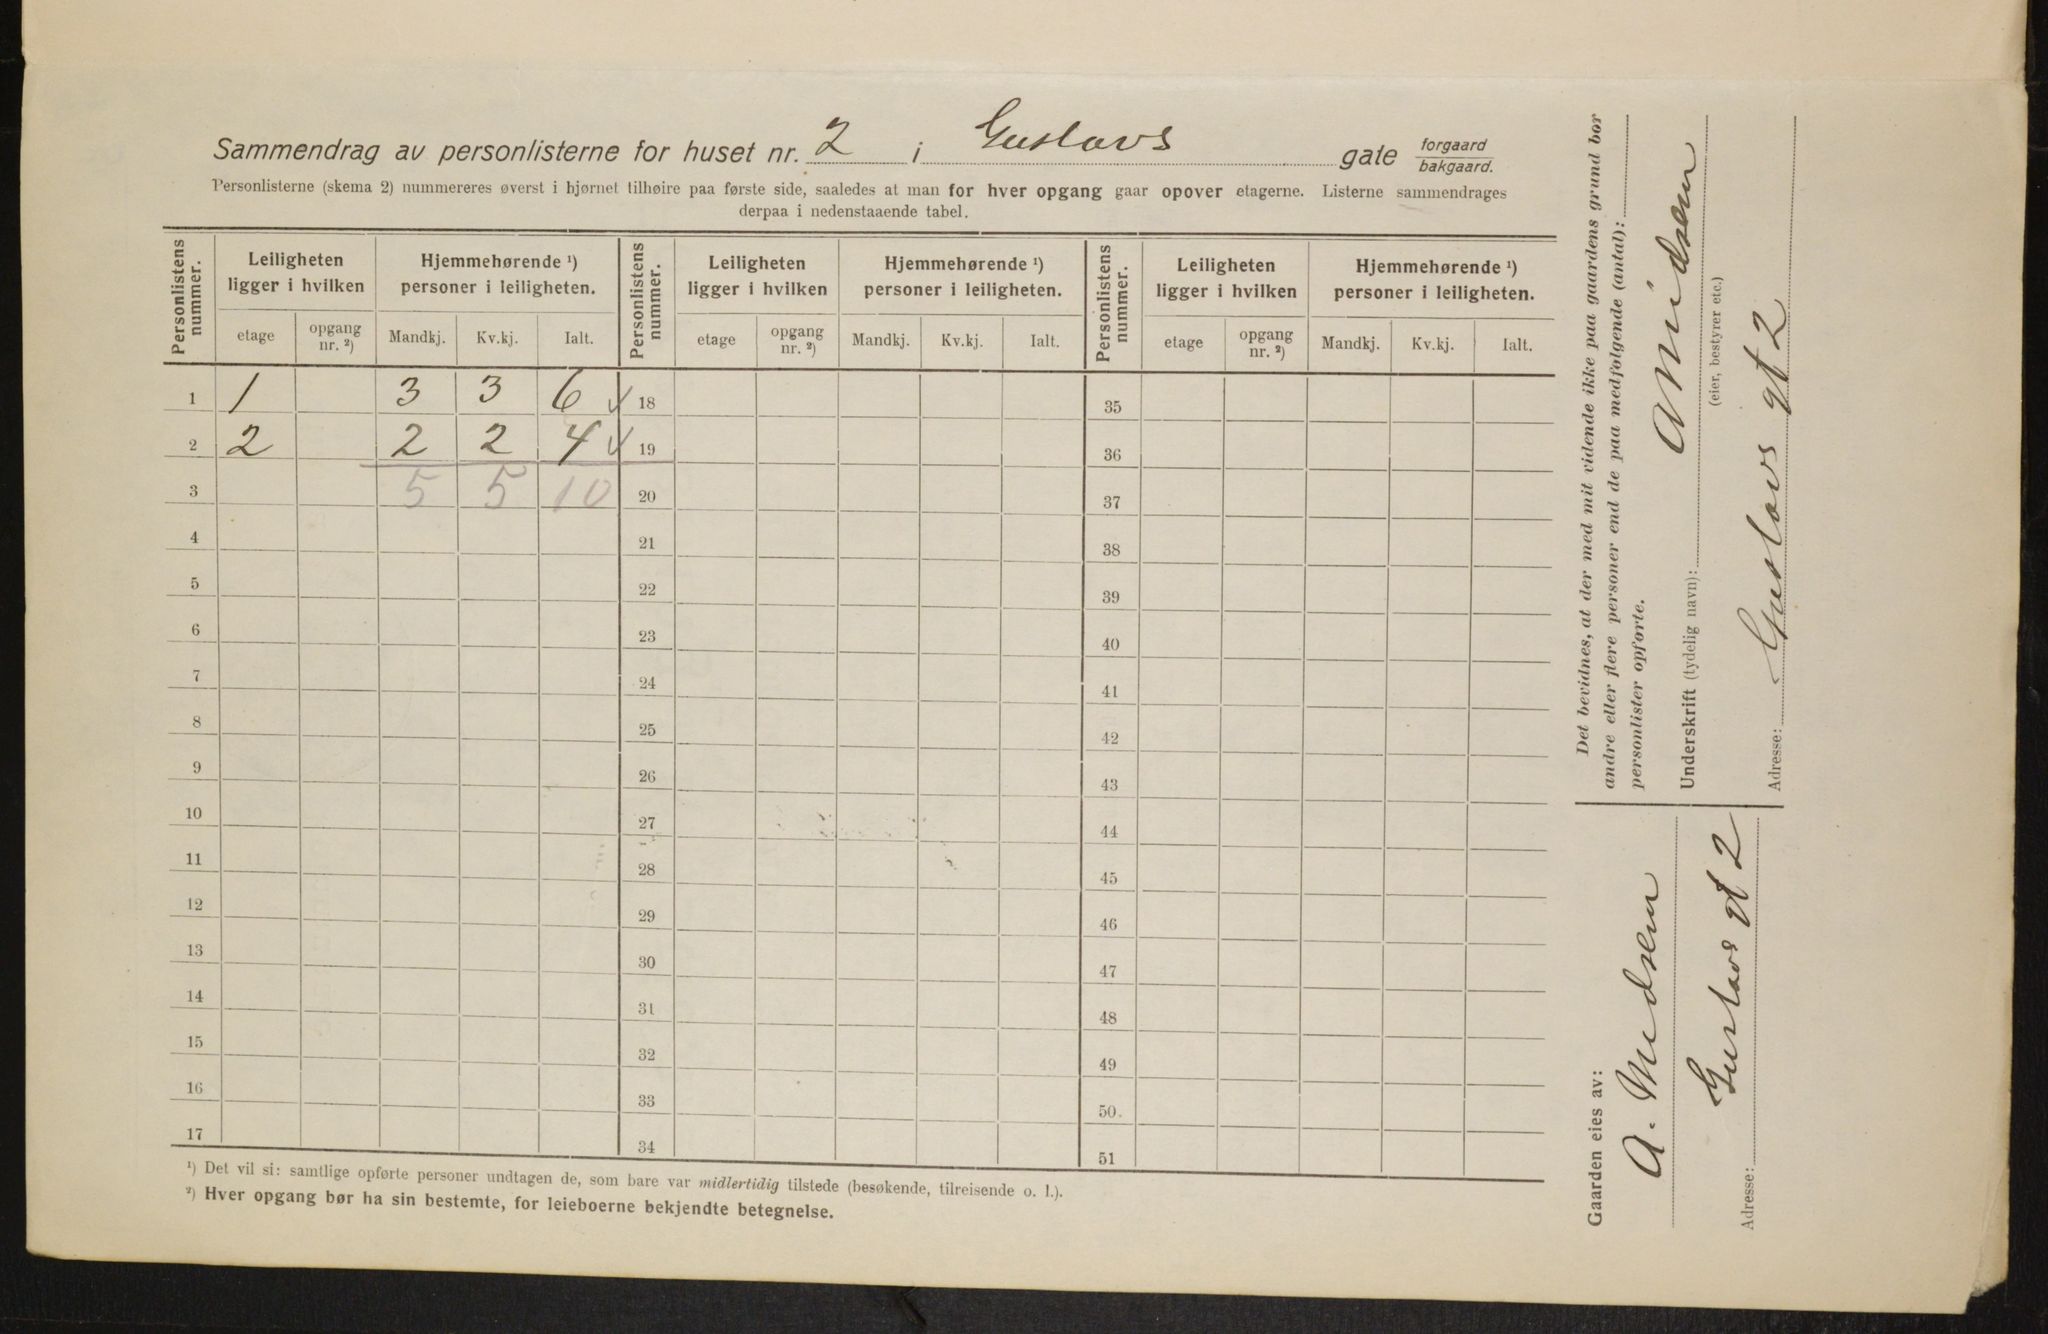 Sammendrag av personlisterne for huset nr. 2 i Gustavs gate forgaard bakgaard.
Personlisterne (skema 2) nummereres øverst i hjørnet tilhøire paa første side, saaledes at man for hver opgang gaar opover etagerne. Listerne sammendrages
derpaa i nedenstaaende tabel.
Personlistens nummer. Leiligheten ligger i hvilken Hjemmehørende ¹) personer i leiligheten. Personlistens nummer. Leiligheten ligger i hvilken Hjemmehørende ¹) personer i leiligheten. Personlistens nummer. Leiligheten ligger i hvilken Hjemmehørende ¹) personer i leiligheten.
etage opgang nr. ²) Mandkj. Kv.kj. Ialt. etage opgang nr. ²) Mandkj. Kv.kj. Ialt. etage opgang nr. ²) Mandkj. Kv.kj. Ialt.
1 1 3 3 6 18 35
2 2 2 2 4 19 36
3 5 5 10 20 37
4 21 38
5 22 39
6 23 40
7 24 41
8 25 42
9 26 43
10 27 44
11 28 45
12 29 46
13 30 47
14 31 48
15 32 49
16 33 50.
17 34 51
¹) Det vil si: samtlige opførte personer undtagen de, som bare var midlertidig tilstede (besøkende, tilreisende o. l.).
²) Hver opgang bør ha sin bestemte, for leieboerne bekjendte betegnelse.
Det bevidnes, at der med mit vidende ikke paa gaardens grund bor
andre eller flere personer end de paa medfølgende (antal):
personlister opførte.
Underskrift (tydelig navn):
(eier, bestyrer etc.)
Adresse: Gustavs gt 2
Gaarden eies av:
A.
Adresse: Gustavs gt 2